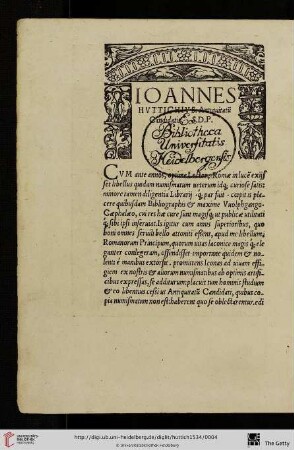 IOANNES
HVTTICHIVS Antiquitatũ
Candidatis S. D. P.
Bibliotheca
Universitatis
Heidelbergensis
CVM ante annos, optime Lector, Romæ in lucẽ exijs
set libellus quidam numismatum ueterum idq; curiose satis
minore tamen diligentia Librarij q̃ par fuit
cere quibusdam Bibliographis & maxime Vuolphgango
Cæphalæo, cui res hæ curæ sunt magisq; ut publicæ utilitati
q̃ sibi ipsi inseruiat. Is igitur cum annis superioribus, quo
boni omnes seruili bello attoniti essent, apud me libellum,
Romanorum Principum, quorum uitas laconice magis q̃ ele
ganter collegeram, offendisset importune quidem & no
lenti è manibus extorsit, promittens Iconas ad uiuam effi
giem ex nostris & aliorum numismatibus ab optimis artifi
cibus expressas, se additurum placuit tum hominis studium
& eo libentius cessi ut Antiquitatũ Candidati, quibus co
pia numismatum non est haberent quo se oblectarent
http://digi.ub.uni-heidelberg.de/diglit/huttich1534/0004
© Universitätsbibliothek Heidelberg
The Getty